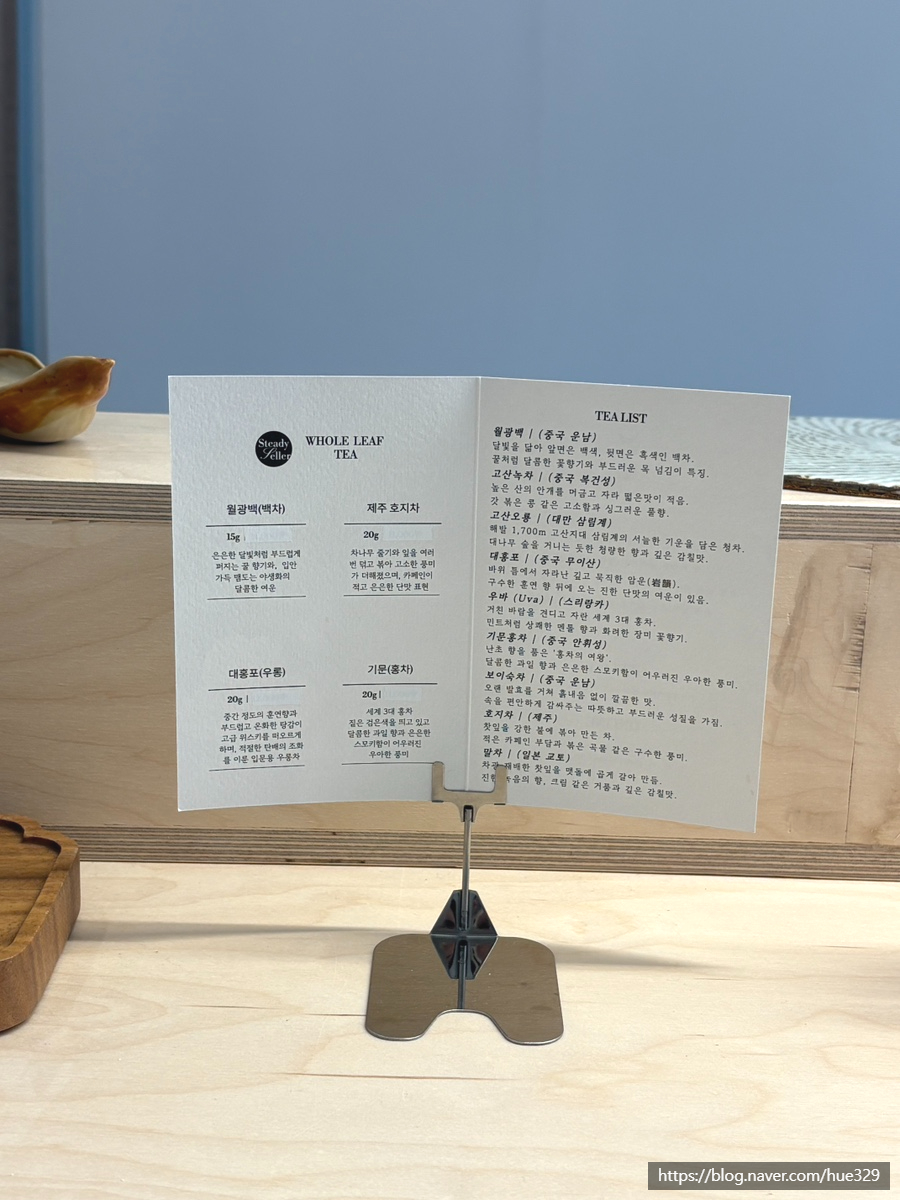 Steady
Seller
WHOLE LEAF
TEA
월광백(백차)
15g |
은은한 달빛처럼 부드럽게
퍼지는 꿀 향기와, 입안
가득 맴도는 야생화의
달콤한 여운
제주 호지차
20g
차나무 줄기와 잎을 여러
번 덖고 볶아 고소한 풍미
가 더해졌으며, 카페인이
적고 은은한 단맛 표현
대홍포(우롱)
20g |
중간 정도의 훈연향과
부드럽고 온화한 탕감이
고급 위스키를 떠오르게
하며, 적절한 탄배의 조화
를 이룬 입문용 우롱차
기문(홍차)
20g |
세계 3대 홍차
짙은 검은색을 띄고 있고
달콤한 과일 향과 은은한
스모키함이 어우러진
우아한 풍미
TEA LIST
월광백 | (중국 운남)
달빛을 닮아 앞면은 백색, 뒷면은 흑색인 백차.
꿀처럼 달콤한 꽃향기와 부드러운 목 넘김이 특징.
고산녹차 | (중국 복건성)
높은 산의 안개를 머금고 자라 떫은맛이 적음.
갓 볶은 콩 같은 고소함과 싱그러운 풀향.
고산오룡 | (대만 삼림계)
해발 1,700m 고산지대 삼림계의 서늘한 기운을 담은 청차.
대나무 숲을 거니는 듯한 청량한 향과 깊은 감칠맛.
대홍포 | (중국 무이산)
바위 틈에서 자라난 깊고 묵직한 암운(岩韻).
구수한 훈연 향 뒤에 오는 진한 단맛의 여운이 있음.
우바 (Uva) | (스리랑카)
거친 바람을 견디고 자란 세계 3대 홍차.
민트처럼 상쾌한 멘톨 향과 화려한 장미 꽃향기.
기문홍차 | (중국 안휘성)
난초 향을 품은 '홍차의 여왕'.
달콤한 과일 향과 은은한 스모키함이 어우러진 우아한 풍미.
보이숙차 | (중국 운남)
오랜 발효를 거쳐 흙내음 없이 깔끔한 맛.
속을 편안하게 감싸주는 따뜻하고 부드러운 성질을 가짐.
호지차 | (제주)
찻잎을 강한 불에 볶아 만든 차.
적은 카페인 부담과 볶은 곡물 같은 구수한 풍미.
말차 | (일본 교토)
차광 재배한 찻잎을 맷돌에 곱게 갈아 만듦.
진한 녹음의 향, 크림 같은 거품과 깊은 감칠맛.
https://blog.naver.com/hue329